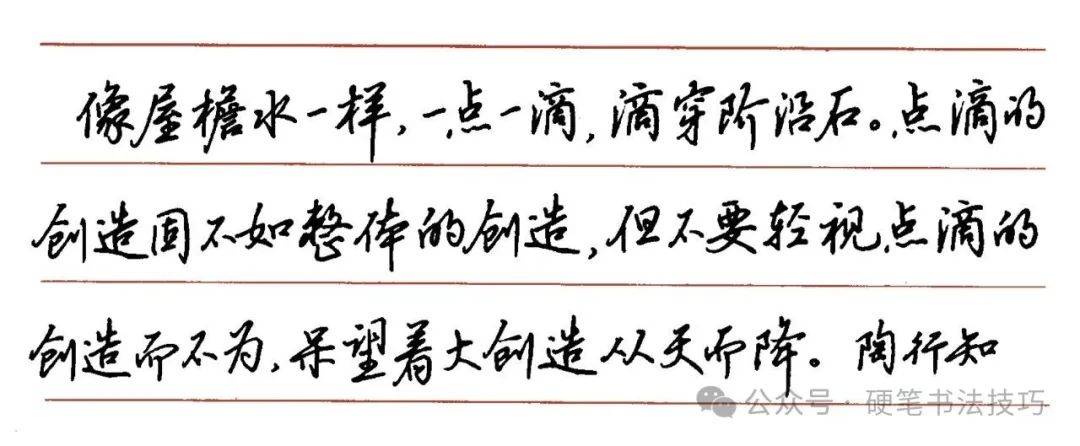 像屋檐水一样，一点一滴，滴穿阶沿石。点滴的
创造固不如整体的创造，但不要轻视点滴的
创造而不为，呆望着大创造从天而降。 陶行知
公众号·硬笔书法技巧